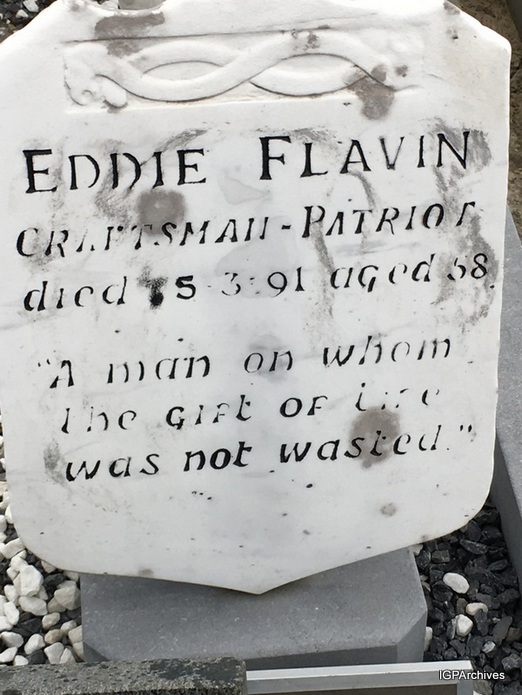 EDDIE FLAVIN
CRAFTSMAN-PATRIOT
died 3.91 aged
"A man on whom
the GIFt OF Life
was not wasted."
IGPArchives